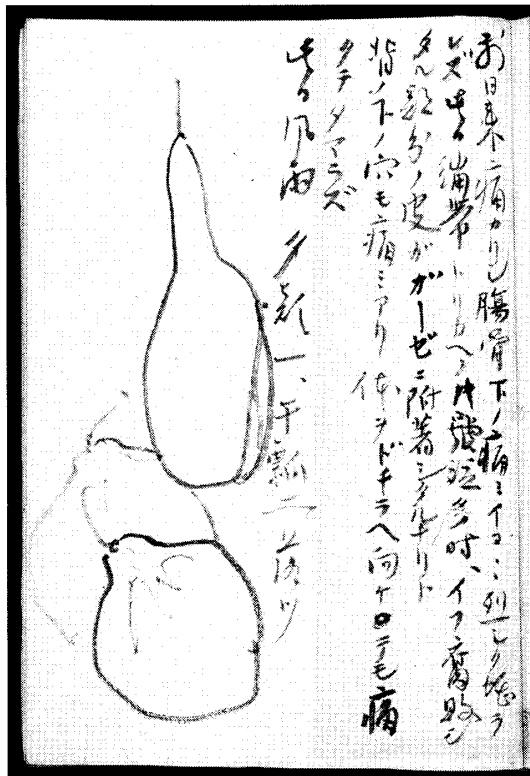 前日来痛カリシ腸骨下ノ痛ミイヨ〻劇シク堪ラ
レズ此日繃帯トリカヘノ時号泣多時、イフ腐敗シ
タル部分ノ皮ガガーゼニ附着シタルナリト
背ノ下ノ穴モ痛ミアリ 体ヲドチラヘ向ケルニモ痛
クテタマラズ
此日風雨 夕顔一、干瓢二落ツ